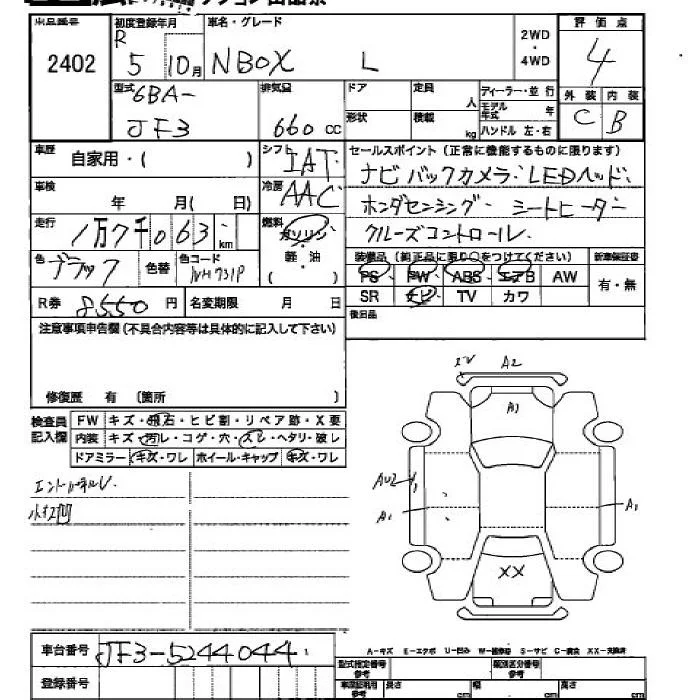 出品番号 初度登録年月 車名・グレード 2WD・4WD 評価点
2402 R 5 10月 NBOX L 4
型式 6BA- JF3 排気量 660 cc ドア 形状 定員 人 積載 kg ディーラー・並行 モデル年式 年 ハンドル 左・右 外装 内装 C B
車歴 自家用・( ) シフト IAT セールスポイント(正常に機能するものに限ります)
車検 年 月( 日) 冷房 AAC ナビ バックカメラ・LEDヘッド、
走行 1万7千063 km 燃料 ガソリン ホンダセンシング、シートヒーター
軽・油 ( ) クルーズコントロール、
色 ブラック 色替 色コード NH731P 装備品(純正品に限り○をつけてください) 新車保証書
PS PW ABS エアB AW 有・無
R券 8550 円 名変期限 月 日 SR ナビ TV カワ
注意事項申告欄(不具合内容等は具体的に記入して下さい) 後日品
修復歴 有 (箇所 )
検査員記入欄 FW キズ・飛石・ヒビ割・リペア跡・X要
内装 キズ・汚レ・コゲ・穴・スレ・ヘタリ・破レ
ドアミラー キズ・ワレ ホイール・キャップ キズ・ワレ
A2
A1
AU2
A1 A1
XX
車台番号 JF3-5244044
A-キズ E-エクボ U-凹み W-補修跡 S-サビ C-腐食 XX-交換済
登録番号 型式指定番号 参考 類別区分番号 参考
車庫証明用 参考 長さ cm 幅 cm 高さ cm